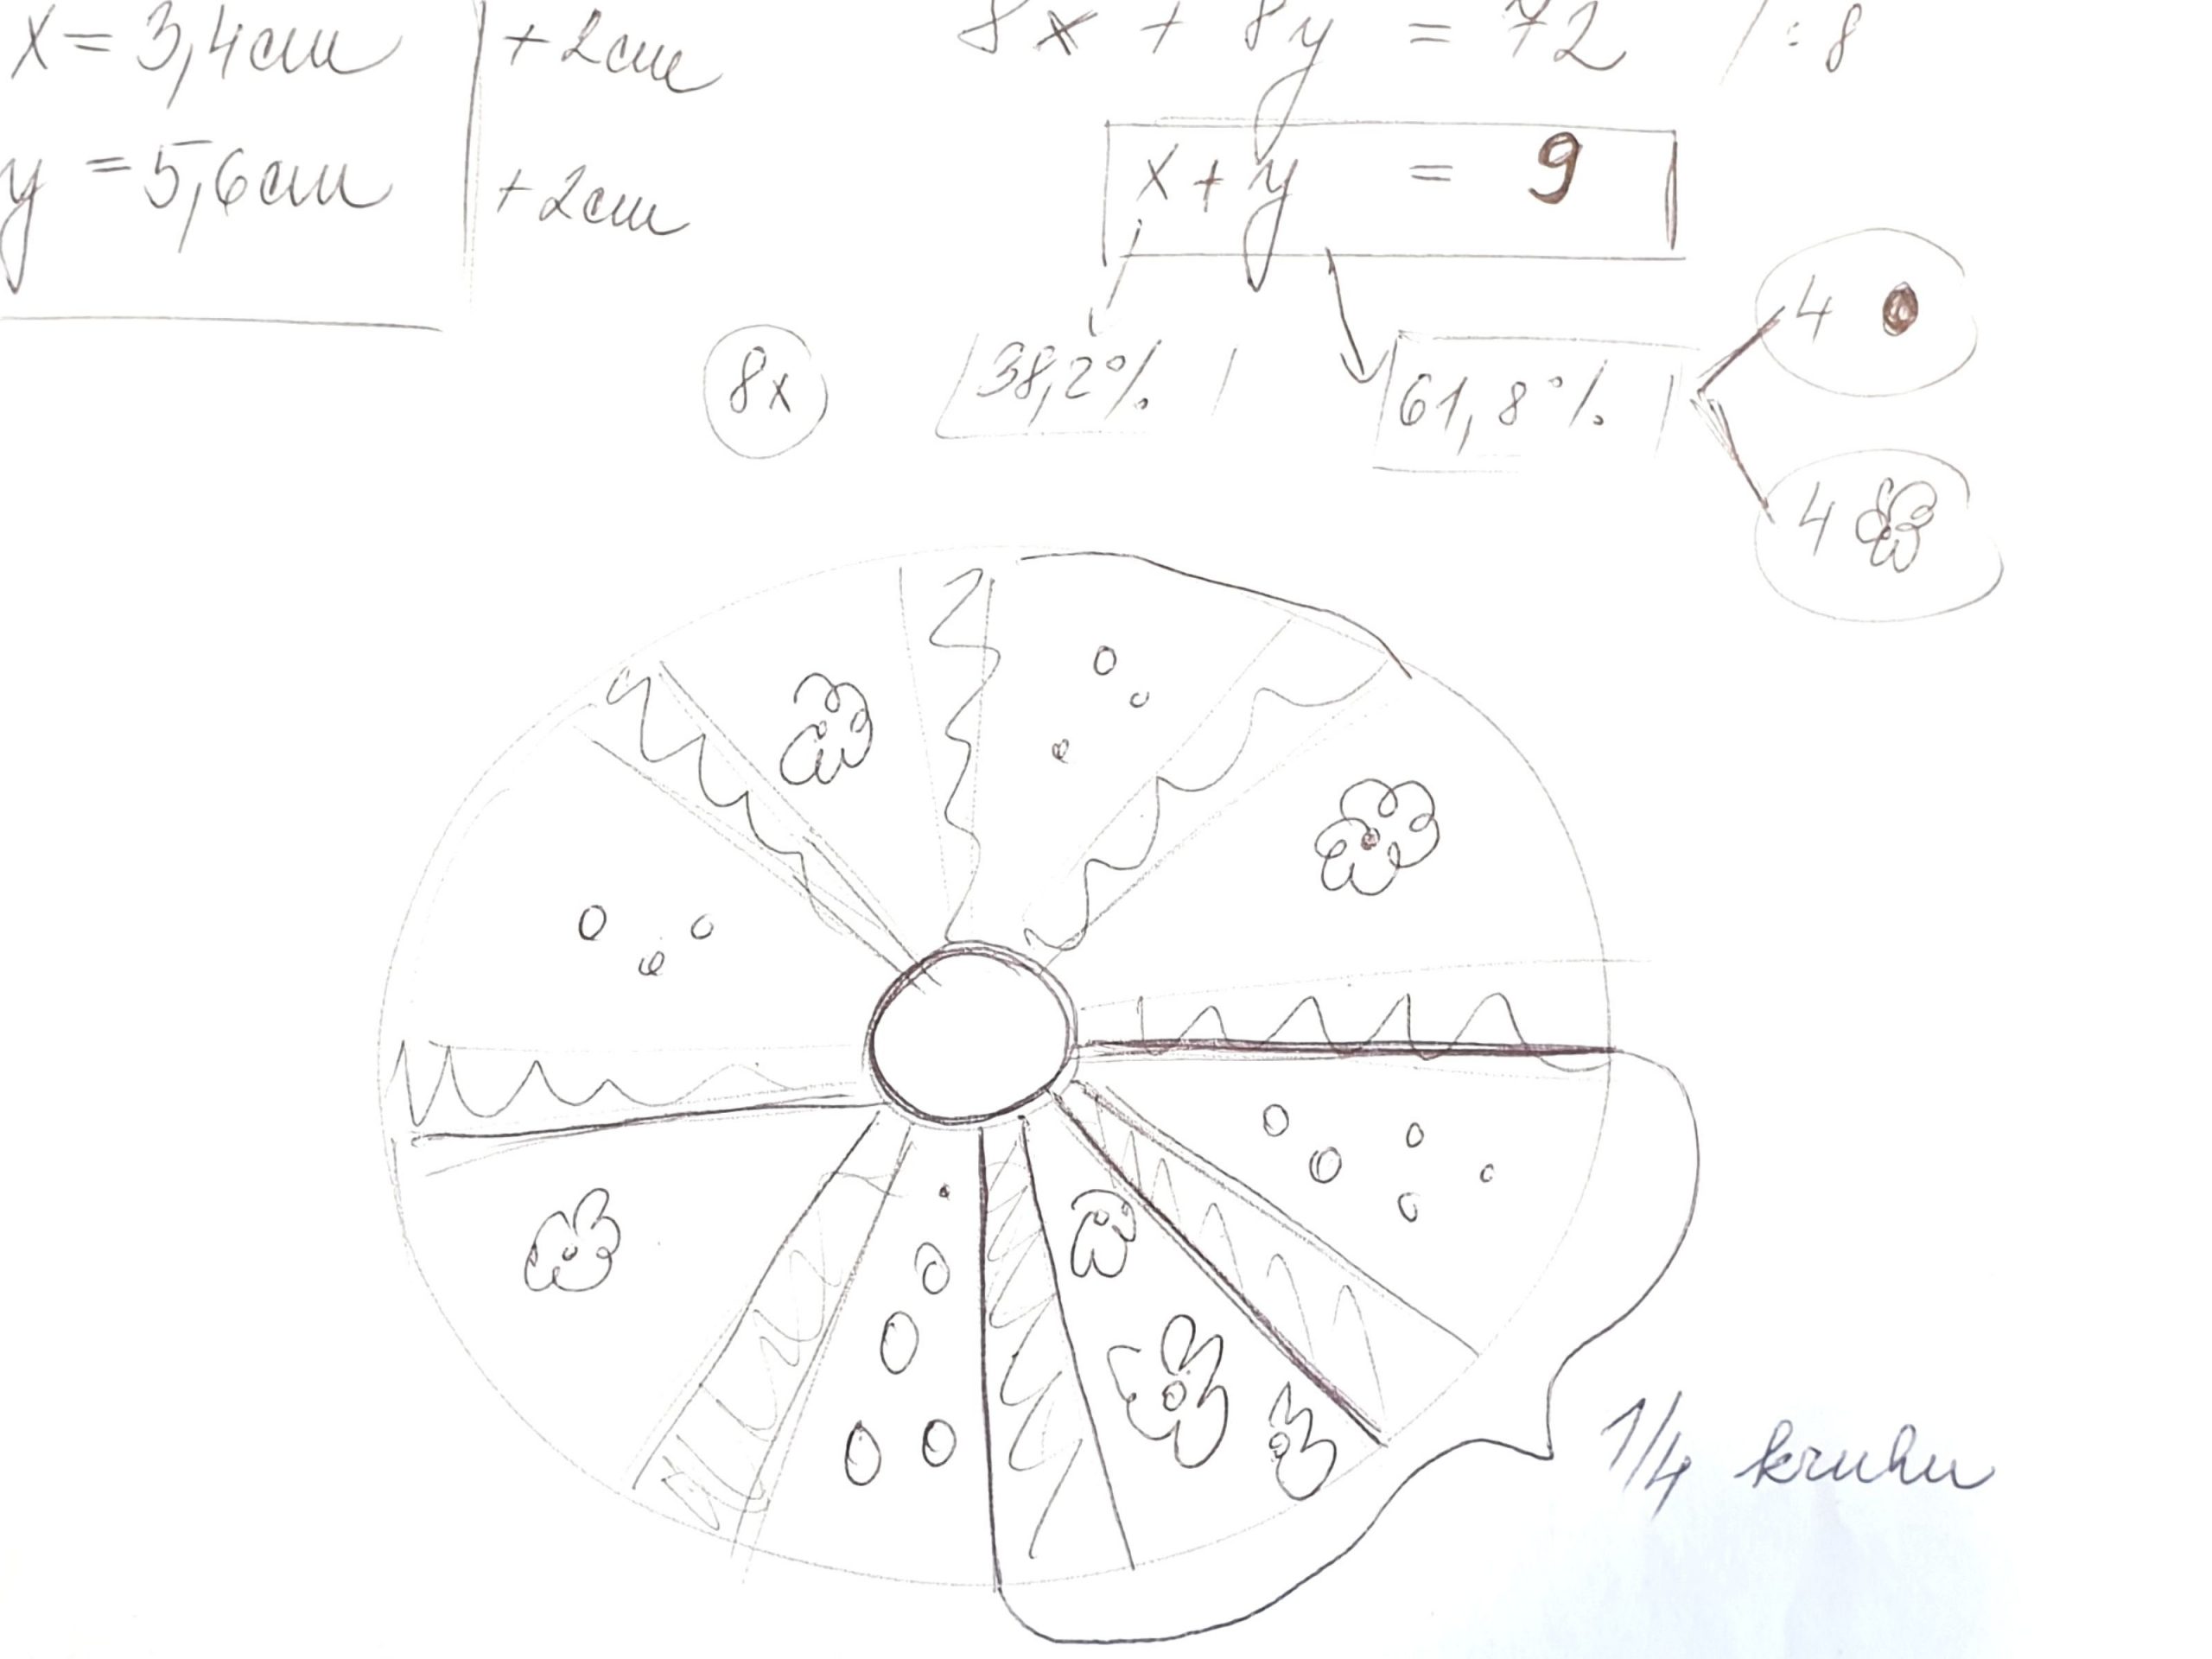 x = 3,4cm | +2cm
y = 5,6cm | +2cm
8x + 8y = 72 /:8
x + y = 9
8x
38,2%
61,8%
4
4
1/4 kruhu